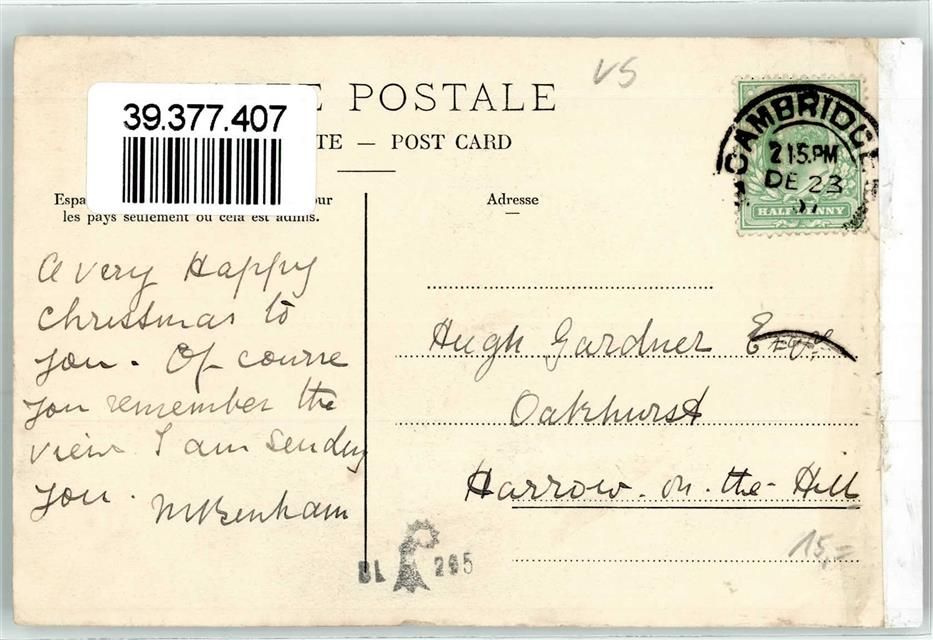 VS
39.377.407
E POSTALE
TE — POST CARD
Espa ur
les pays seulement où cela est admis.
Adresse
CAMBRIDGE
2 15.PM
DE 23
07
HALFPENNY
A very Happy
Christmas to
you. Of course
you remember the
view I am sending
you.
Hugh Gardner Esqre
Oakhurst
Harrow-on-the-Hill
BL 295
15,-